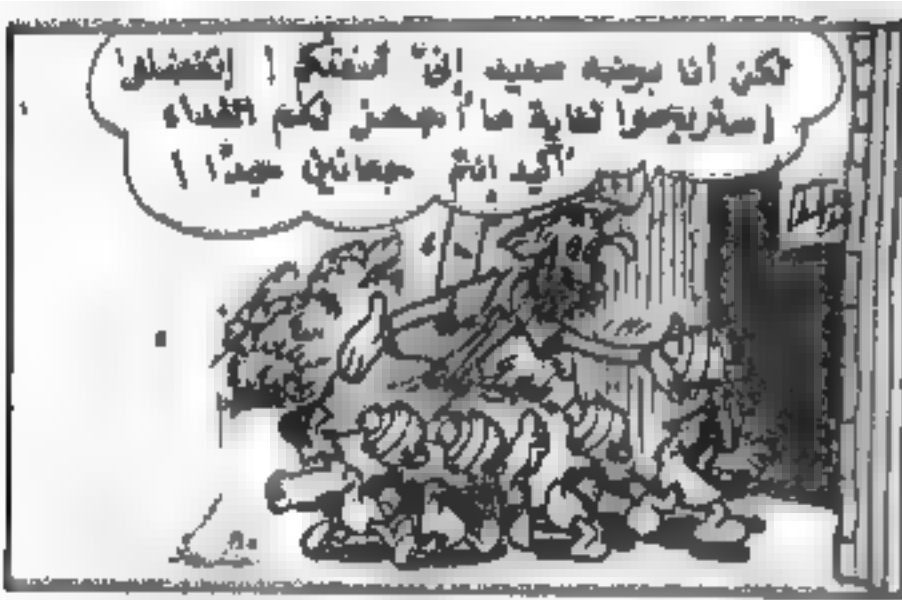 لكن أنا بوجه سعيد إن كنتم ! إتفضلوا
إستريحوا لغاية ما أجهز لكم الغداء
أكيد انتم جعانين جدًا !